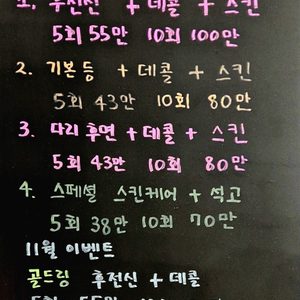 1. 후전신 + 데콜 + 스킨
5회 55만 10회 100만
2. 기본등 + 데콜 + 스킨
5회 43만 10회 80만
3. 다리후면 + 데콜 + 스킨
5회 43만 10회 80만
4. 스페셜 스킨케어 + 석고
5회 38만 10회 70만
11월 이벤트
골드링 후전신 + 데콜